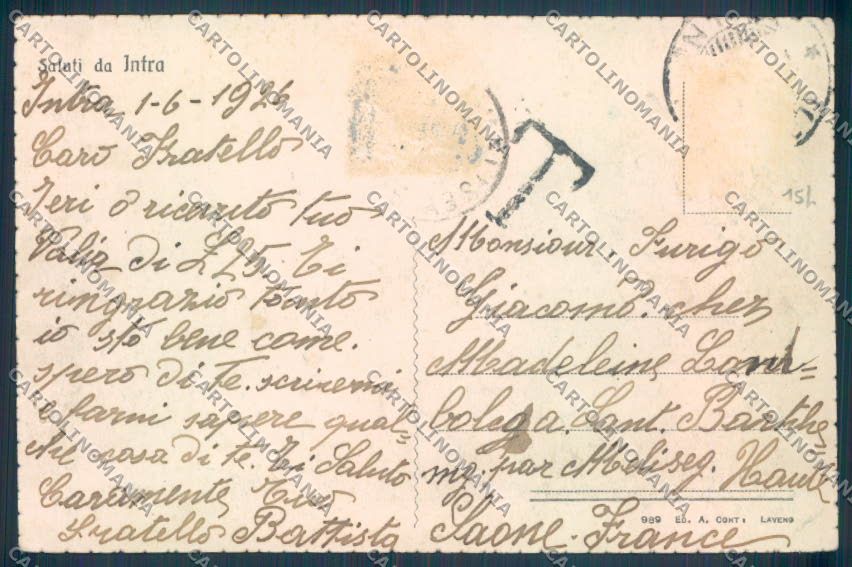 Saluti da Intra
Intra 1-6-1926
Caro Fratello
Ieri ò ricevuto tuo
Valia di £25. Ti
ringrazio tanto
io stò bene come.
spero di te. scrivemi
e farmi sapere qual-
che cosa di te. Ti Saluto
Caramente Tuo
Fratello Battista
T
Monsiour. Furigo
Giacomo. chez
Madeleine Lom-
bolega. Sant. Barthe
my. par Meliseg. Haute
Saone. France
15/
989 ED. A. CONTI LAVENO
CARTOLINOMANIA